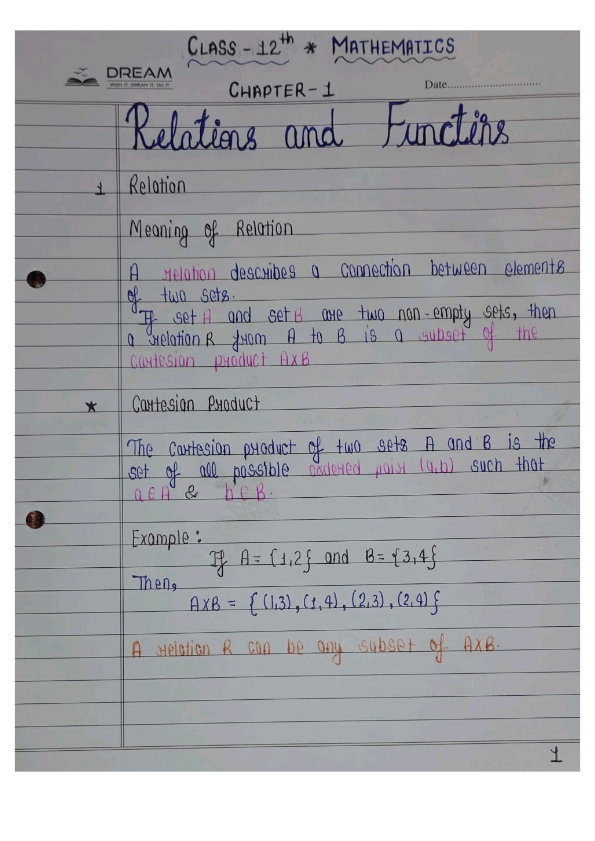 CLASS - 12th * MATHEMATICS
DREAM
WISH IT, DREAM IT, DO IT
CHAPTER - 1
Date..............................
Relations and Functins
1 Relation
Meaning of Relation
A relation describes a connection between elements
of two sets.
If set A and set B are two non-empty sets, then
a relation R from A to B is a subset of the
Cartesian product AxB
* Cartesian Product
The Cartesian product of two sets A and B is the
set of all possible ordered pair (a,b) such that
a∈A & b∈B.
Example :
If A = {1,2} and B = {3,4}
Then,
AxB = { (1,3), (1,4), (2,3), (2,4) }
A relation R can be any subset of AxB.
1